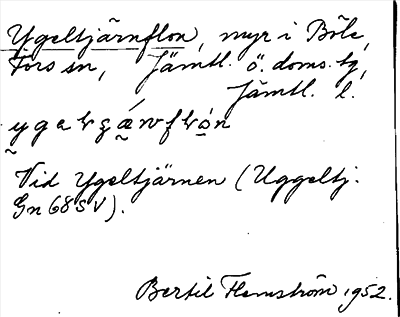 Ygeltjärnflon, myr i Böle,
Fors sn, Jämtl. ö. doms. tg,
Jämtl. l.
Vid Ygeltjärnen (Uggeltj.
Gn 68 SV).
Bertil Flemström 1952.